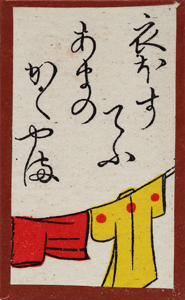 衣ほす
てふ
あまの
かぐ山